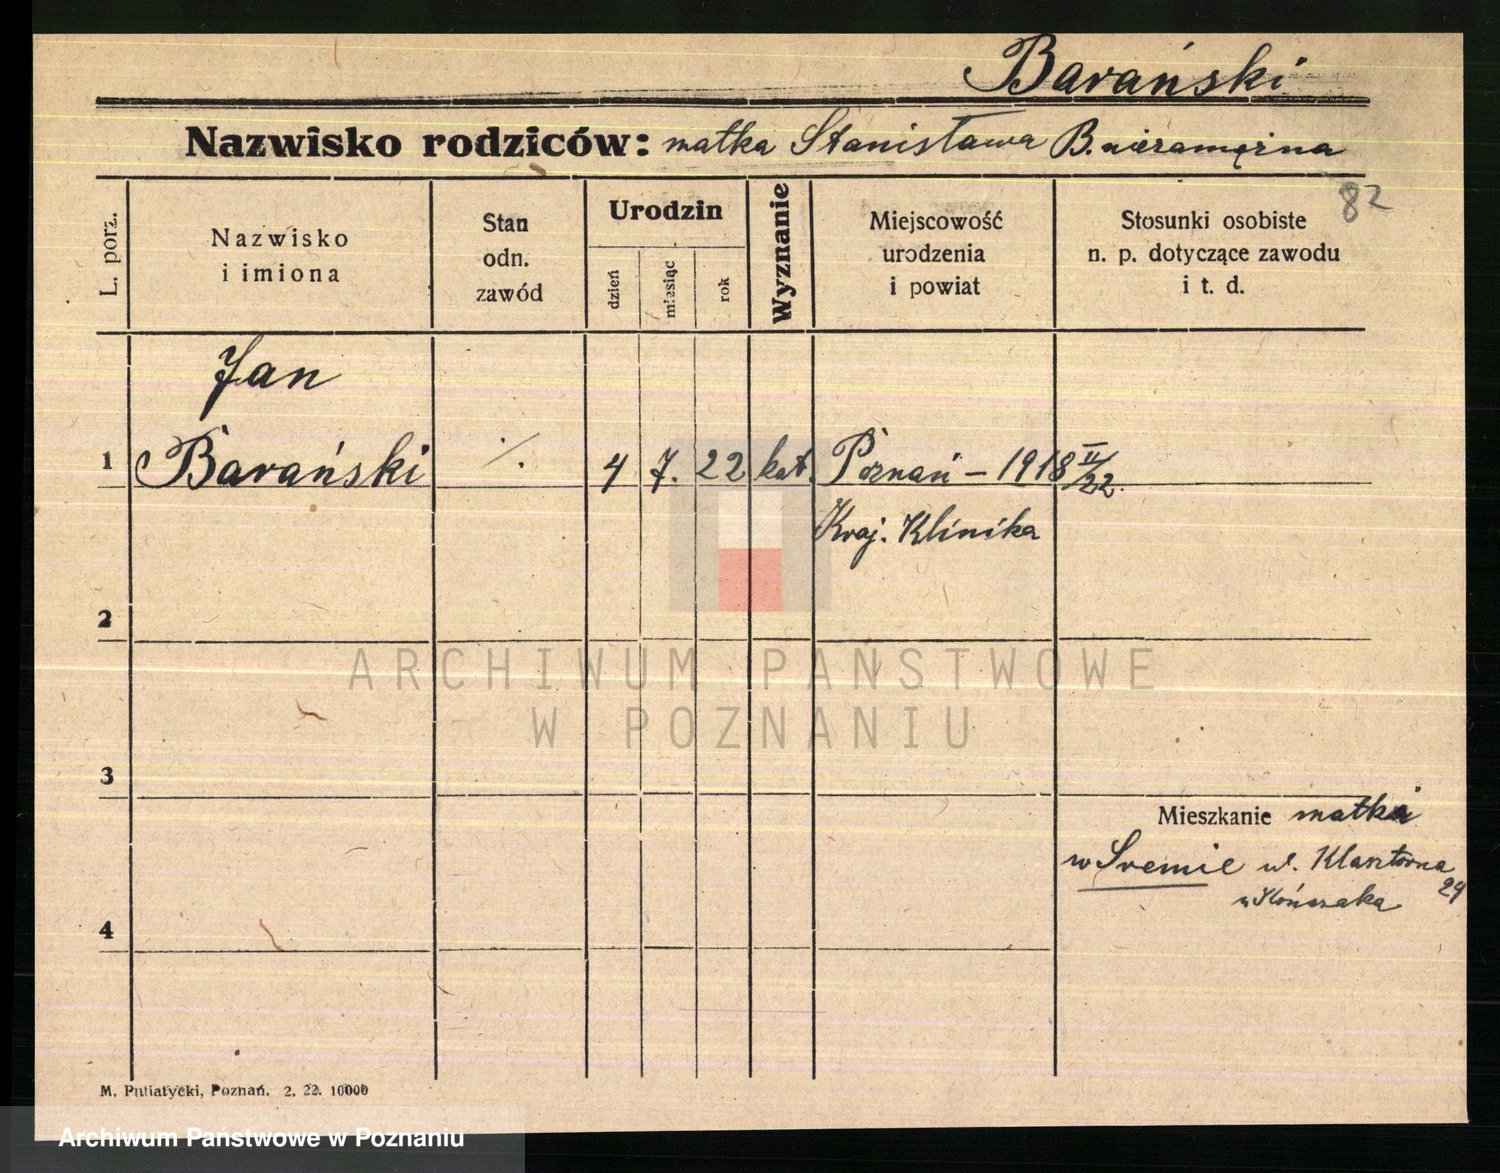 Barański
Nazwisko rodziców: matka Stanisława B. niezamężna
82
L. porz.
Nazwisko
i imiona
Stan
odn.
zawód
Urodzin
dzień
miesiąc
rok
Wyznanie
Miejscowość
urodzenia
i powiat
Stosunki osobiste
n. p. dotyczące zawodu
i t. d.
Jan
1 Barański ·/. 4 7. 22 kat. Poznań – 1918 II/22.
Kraj. Klinika
2
ARCHIWUM PAŃSTWOWE
W POZNANIU
3
Mieszkanie matki
w Śremie ul. Klasztorna
29
u Kończaka
4
M. Putiatycki, Poznań. 2. 22. 10000
Archiwum Państwowe w Poznaniu